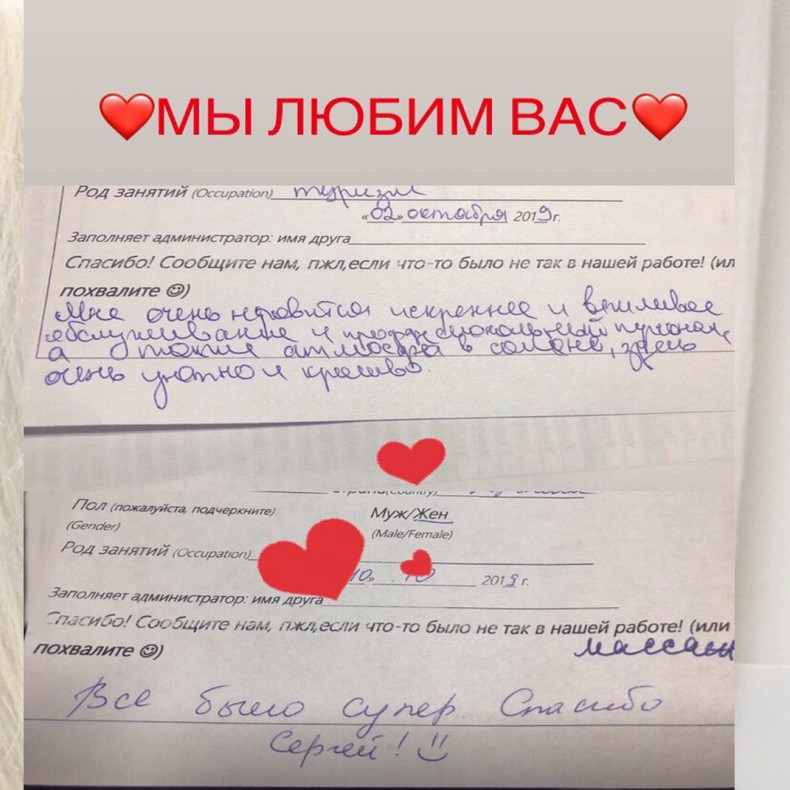 ❤️МЫ ЛЮБИМ ВАС❤️
Род занятий (Occupation) туризм
«02» октября 2019г.
Заполняет администратор: имя друга
Спасибо! Сообщите нам, пжл,если что-то было не так в нашей работе! (ил
похвалите ☺)
Мне очень нравится искреннее и вежливое
обслуживание и
а также атмосфера в салоне, здесь
очень уютно и красиво.
Пол (пожалуйста, подчеркните) Муж/Жен
(Gender) (Male/Female)
Род занятий (Occupation)
10» 10 2019 г.
Заполняет администратор: имя друга
Спасибо! Сообщите нам, пжл,если что-то было не так в нашей работе! (или
похвалите ☺) массаж
Все было супер. Спасибо
Сергей!